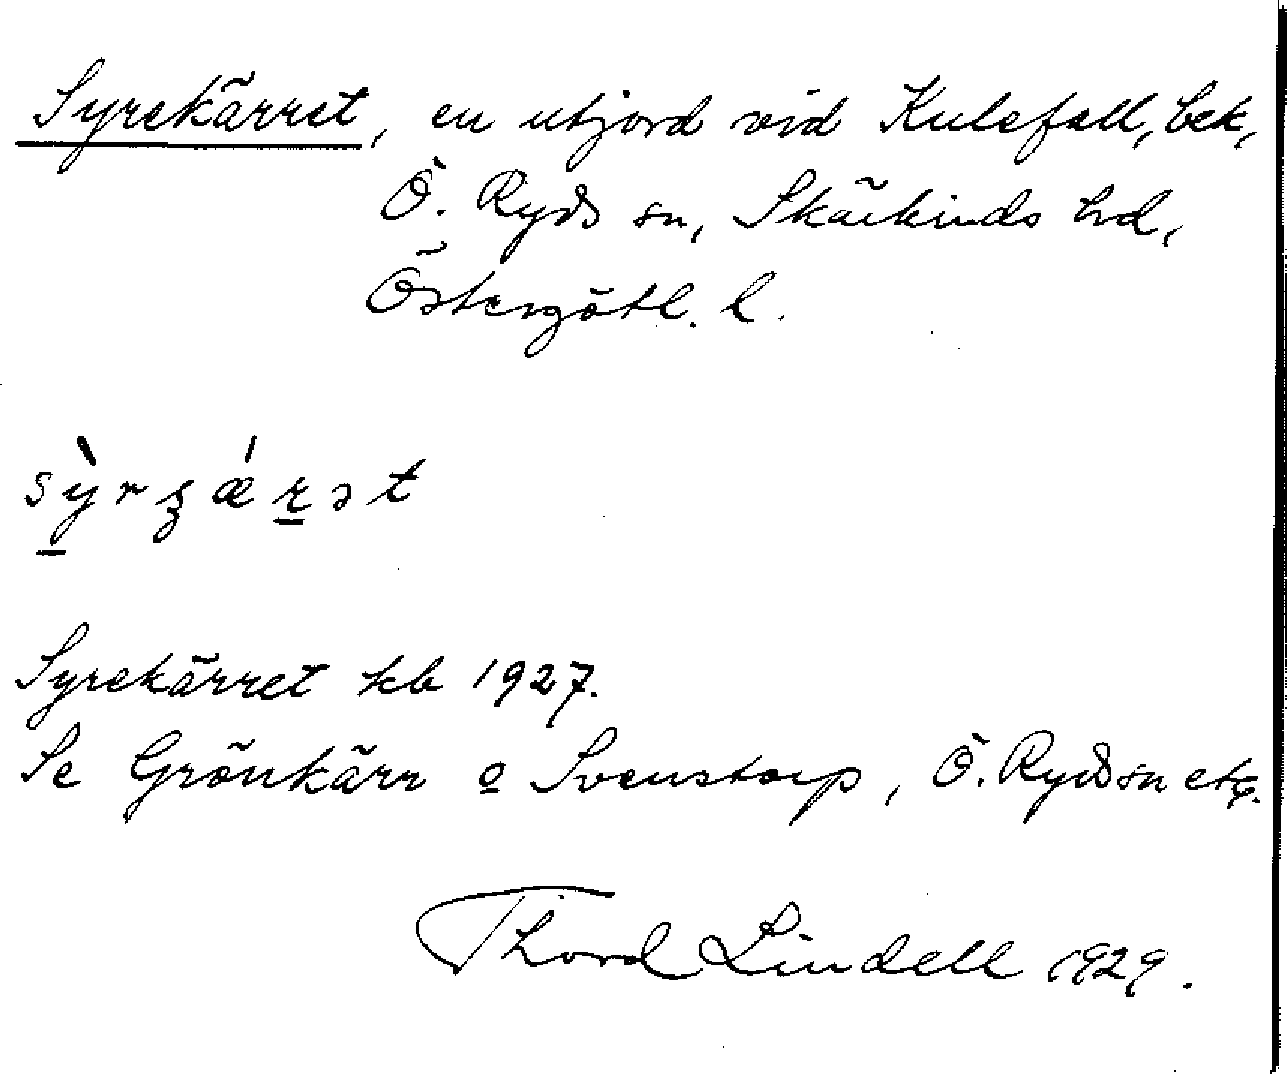 Syrekärret, en utjord vid Kulefall, bek,
Ö. Ryds sn, Skärkinds hrd,
Östergötl. l.
sỳ̠rʒǽr̠ət
Syrekärret kb 1927.
Se Grönkärr o Svenstorp, Ö. Ryds sn etc.
Thord Lindell 1929.